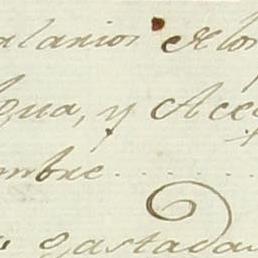 alarios de los
gua, y Ace
mbre
gastada